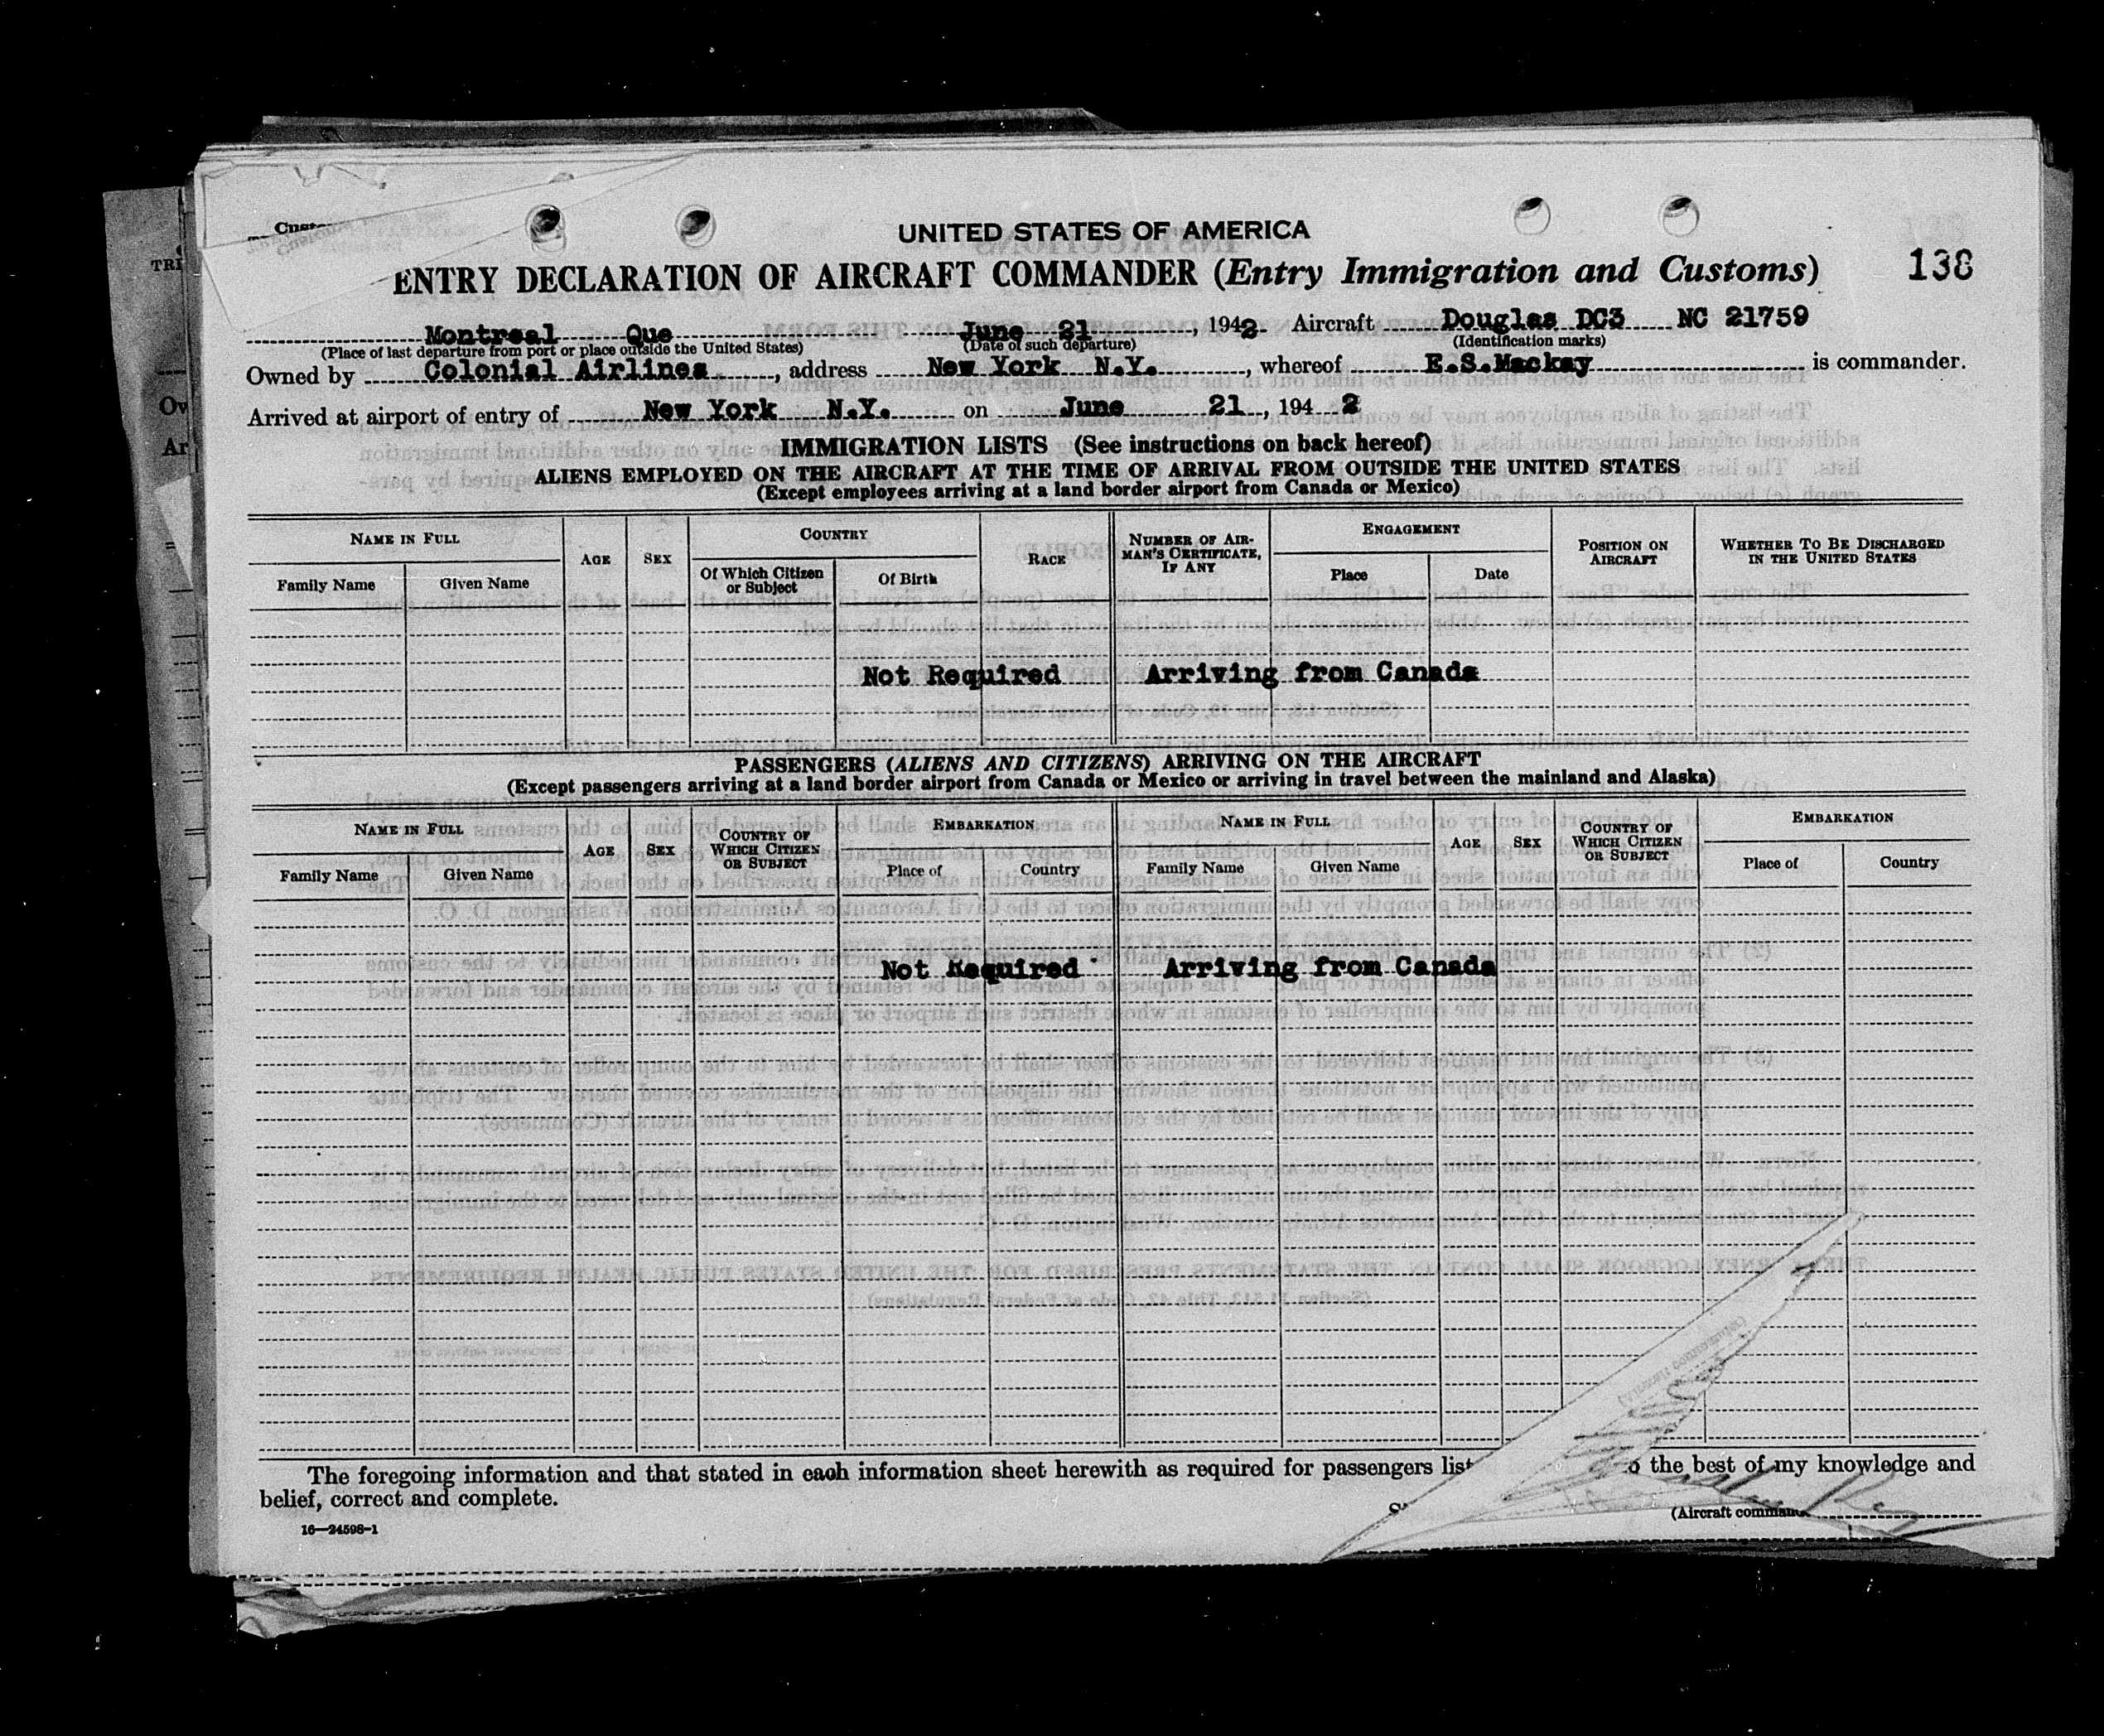 UNITED STATES OF AMERICA
ENTRY DECLARATION OF AIRCRAFT COMMANDER (Entry Immigration and Customs) 138
Montreal Que June 21, 1942 Aircraft Douglas DC3 NC 21759
(Place of last departure from port or place outside the United States) (Date of such departure) (Identification marks)
Owned by Colonial Airlines, address New York N.Y., whereof E.S.Mackay is commander.
Arrived at airport of entry of New York N.Y. on June 21, 1942
IMMIGRATION LISTS (See instructions on back hereof)
ALIENS EMPLOYED ON THE AIRCRAFT AT THE TIME OF ARRIVAL FROM OUTSIDE THE UNITED STATES
(Except employees arriving at a land border airport from Canada or Mexico)
NAME IN FULL AGE SEX COUNTRY RACE NUMBER OF AIRMAN'S CERTIFICATE, IF ANY ENGAGEMENT POSITION ON AIRCRAFT WHETHER TO BE DISCHARGED IN THE UNITED STATES
Family Name Given Name Of Which Citizen or Subject Of Birth Place Date
Not Required Arriving from Canada
PASSENGERS (ALIENS AND CITIZENS) ARRIVING ON THE AIRCRAFT
(Except passengers arriving at a land border airport from Canada or Mexico or arriving in travel between the mainland and Alaska)
NAME IN FULL AGE SEX COUNTRY OF WHICH CITIZEN OR SUBJECT EMBARKATION NAME IN FULL AGE SEX COUNTRY OF WHICH CITIZEN OR SUBJECT EMBARKATION
Family Name Given Name Place of Country Family Name Given Name Place of Country
Not Required Arriving from Canada
The foregoing information and that stated in each information sheet herewith as required for passengers list the best of my knowledge and
belief, correct and complete.
(Aircraft
16—24598-1